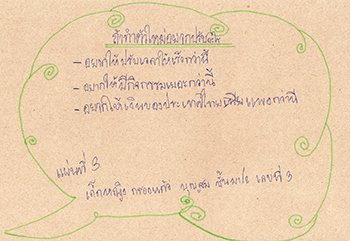 ถ้าทำตัวใหม่อยากปรับเป็น
- อยากให้ปรับเวลาให้เร็วกว่านี้
- อยากให้มีกิจกรรมเยอะกว่านี้
- อยากให้เงินของประเทศไทย แพงกว่านี้
แผ่นที่ 3
เด็กหญิง กรองแก้ว บุญสม ชั้น เลขที่ 3